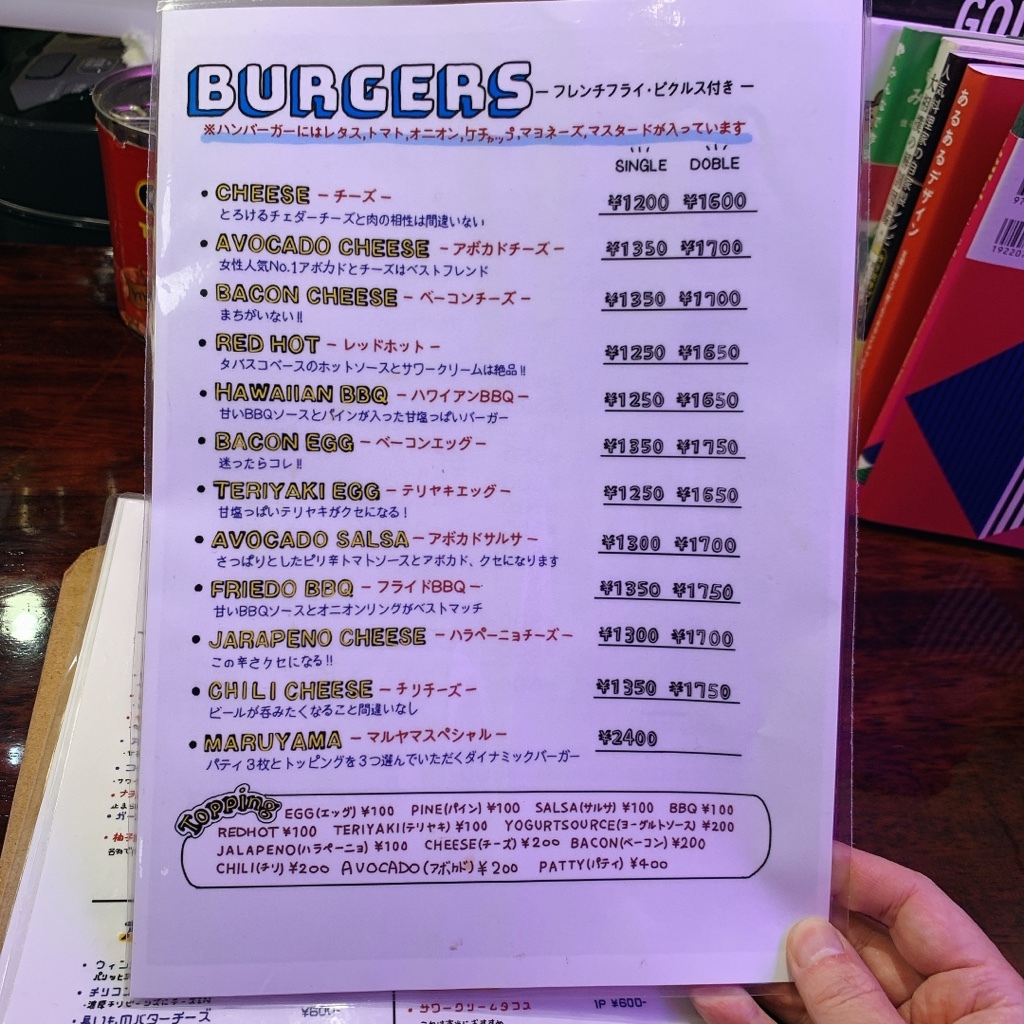 BURGERS ー フレンチフライ・ピクルス付き ー
※ハンバーガーにはレタス,トマト,オニオン,ケチャップ,マヨネーズ,マスタードが入っています
SINGLE DOBLE
• CHEESE −チーズ− ¥1200 ¥1600
とろけるチェダーチーズと肉の相性は間違いない
• AVOCADO CHEESE −アボカドチーズ− ¥1350 ¥1700
女性人気No.1アボカドとチーズはベストフレンド
• BACON CHEESE −ベーコンチーズ− ¥1350 ¥1700
まちがいない!!
• RED HOT −レッドホット− ¥1250 ¥1650
タバスコベースのホットソースとサワークリームは絶品!!
• HAWAIIAN BBQ −ハワイアンBBQ− ¥1250 ¥1650
甘いBBQソースとパインが入った甘塩っぱいバーガー
• BACON EGG −ベーコンエッグ− ¥1350 ¥1750
迷ったらコレ!!
• TERIYAKI EGG −テリヤキエッグ− ¥1250 ¥1650
甘塩っぱいテリヤキがクセになる!
• AVOCADO SALSA −アボカドサルサ− ¥1300 ¥1700
さっぱりとしたピリ辛トマトソースとアボカド、クセになります
• FRIEDO BBQ −フライドBBQ− ¥1350 ¥1750
甘いBBQソースとオニオンリングがベストマッチ
• JARAPENO CHEESE −ハラペーニョチーズ− ¥1300 ¥1700
この辛さクセになる!!
• CHILI CHEESE −チリチーズ− ¥1350 ¥1750
ビールが呑みたくなること間違いなし
• MARUYAMA −マルヤマスペシャル− ¥2400
パティ3枚とトッピングを3つ選んでいただくダイナミックバーガー
Topping
EGG(エッグ) ¥100 PINE(パイン) ¥100 SALSA(サルサ) ¥100 BBQ ¥100
REDHOT ¥100 TERIYAKI(テリヤキ) ¥100 YOGURTSOURCE(ヨーグルトソース) ¥200
JALAPENO(ハラペーニョ) ¥100 CHEESE(チーズ) ¥200 BACON(ベーコン) ¥200
CHILI(チリ) ¥200 AVOCADO(アボカド) ¥200 PATTY(パティ) ¥400
あるあるデザイン
• ウィン
• チリコン
• 長いものバターチーズ
¥600-
• サワークリームタコス 1P ¥600-